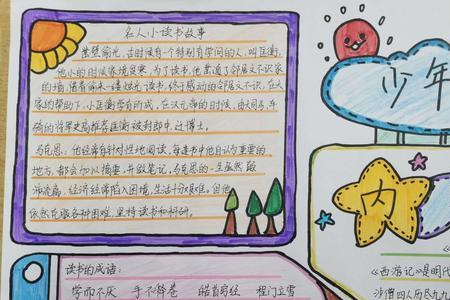 名人小读书故事
凿壁偷光,古时候有个特别有学问的人,叫匡衡,
他小的时候家境贫寒,为了读书,他凿通了邻居文不识家
的墙,借着偷来一缕烛光读书,终于感动的邻居文不识,在大
家的帮助下,小匡衡学有所成,在汉元帝的时候,由大司马、车
骑的将军史高推荐匡衡被封郎中,迁博士。
马克思:他经常有针对性地阅读,每读书中他自认为重要的
地方,都会加以摘要,并做笔记,马克思的一生虽然颠
沛流离,经济经常陷入困境,生活十分艰难。但他
依然克服各种困难,坚持读书和科研。
少年
内
读书的成语:
学而不厌 手不释卷 皓首穷经 程门立雪
《西游记》是明代
沙僧四人历尽九九